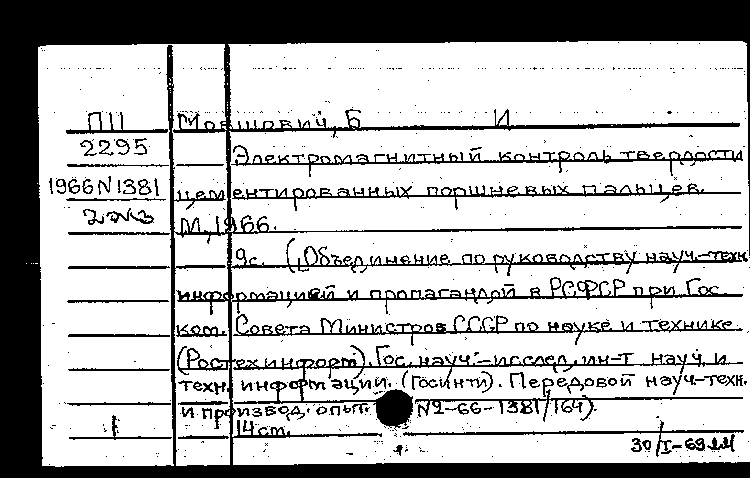 П11 Мовшович, Б И
2295 Электромагнитный контроль твердости
1966 N1381 цементированных поршневых пальцев.
2 экз М, 1966.
9с. (Объединение по руководству науч.-техн
информацией и пропагандой в РСФСР при Гос
ком. Совета Министров СССР по науке и технике
(Ростехинформ). Гос. науч.-исслед. ин-т науч. и
техн. информации. (Госинти). Передовой науч-техн.
и производ. опыт. №2-66-1381/164).
1 14 cm.
30/I-69